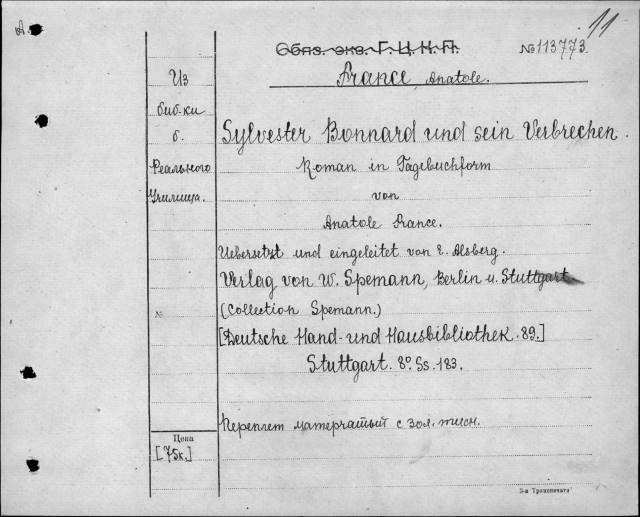 11
А.
Обяз. экз. Г.Ц.К.П.
№113773.
France, Anatole.
Из
биб-ки
б.
Реального
Училища.
Sylvester Bonnard und sein Verbrechen.
Roman in Tagebuchform
von
Anatole France.
Uebersetzt und eingeleitet von E. Alsberg.
Verlag von W. Spemann, Berlin u. Stuttgart
(Collection Spemann.)
№
[Deutsche Hand- und Hausbibliothek. 89.]
Stuttgart. 8° Ss. 183.
Переплет матерчатый с зол. тисн.
Цена
[75к.]